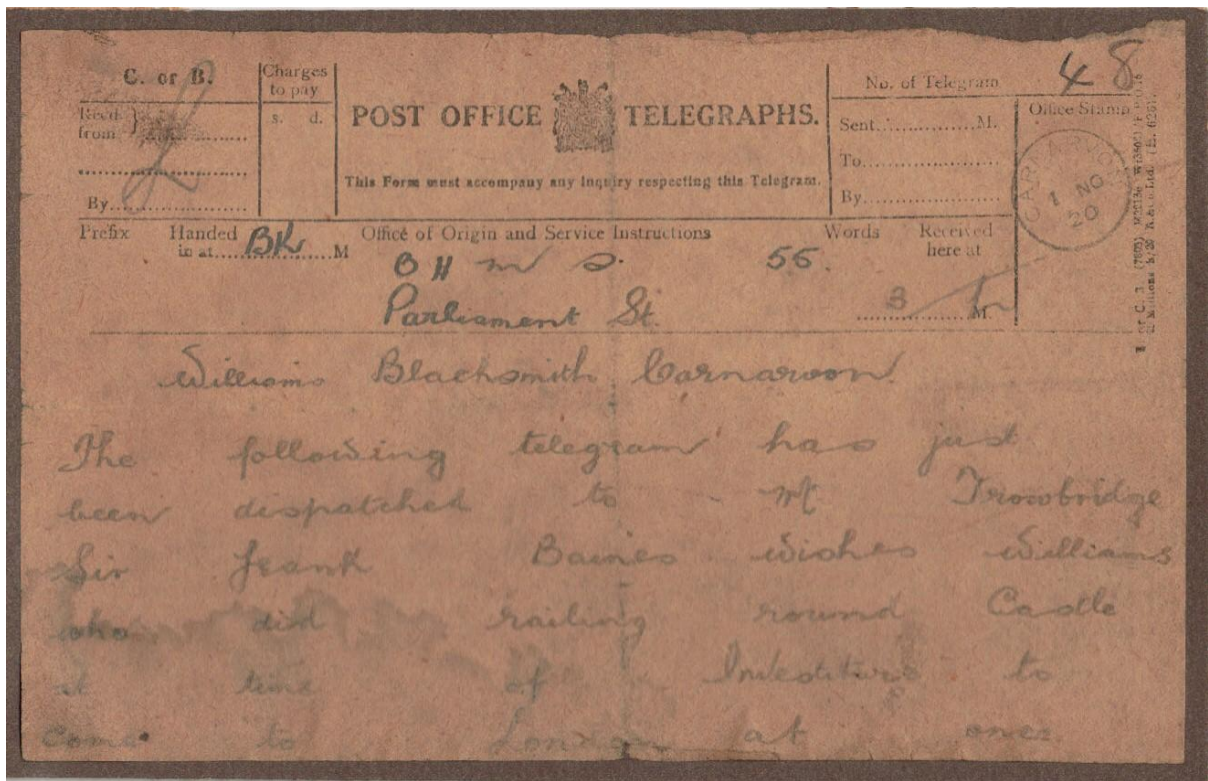 C. or B.
Charges
to pay
s. d.
Recd.
from
By
POST OFFICE TELEGRAPHS.
This Form must accompany any Inquiry respecting this Telegram.
No. of Telegram 48
Sent M.
To
By
Office Stamp
CARNARVON
1 NO
20
Prefix Handed in at BK M
Office of Origin and Service Instructions
Words Received here at
O H M S. 55.
Parliament St.
3 M.
Williams Blacksmith Carnarvon.
The following telegram has just
been dispatched to Mr Trowbridge
Sir Frank Baines wishes Williams
who did railing round Castle
at time of Investiture to
come to London at once